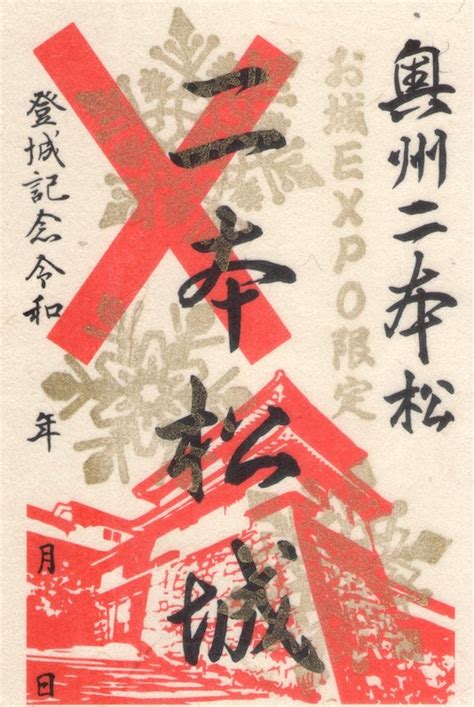 奥州二本松
お城EXPO限定
二本松城
登城記念令和 年 月 日